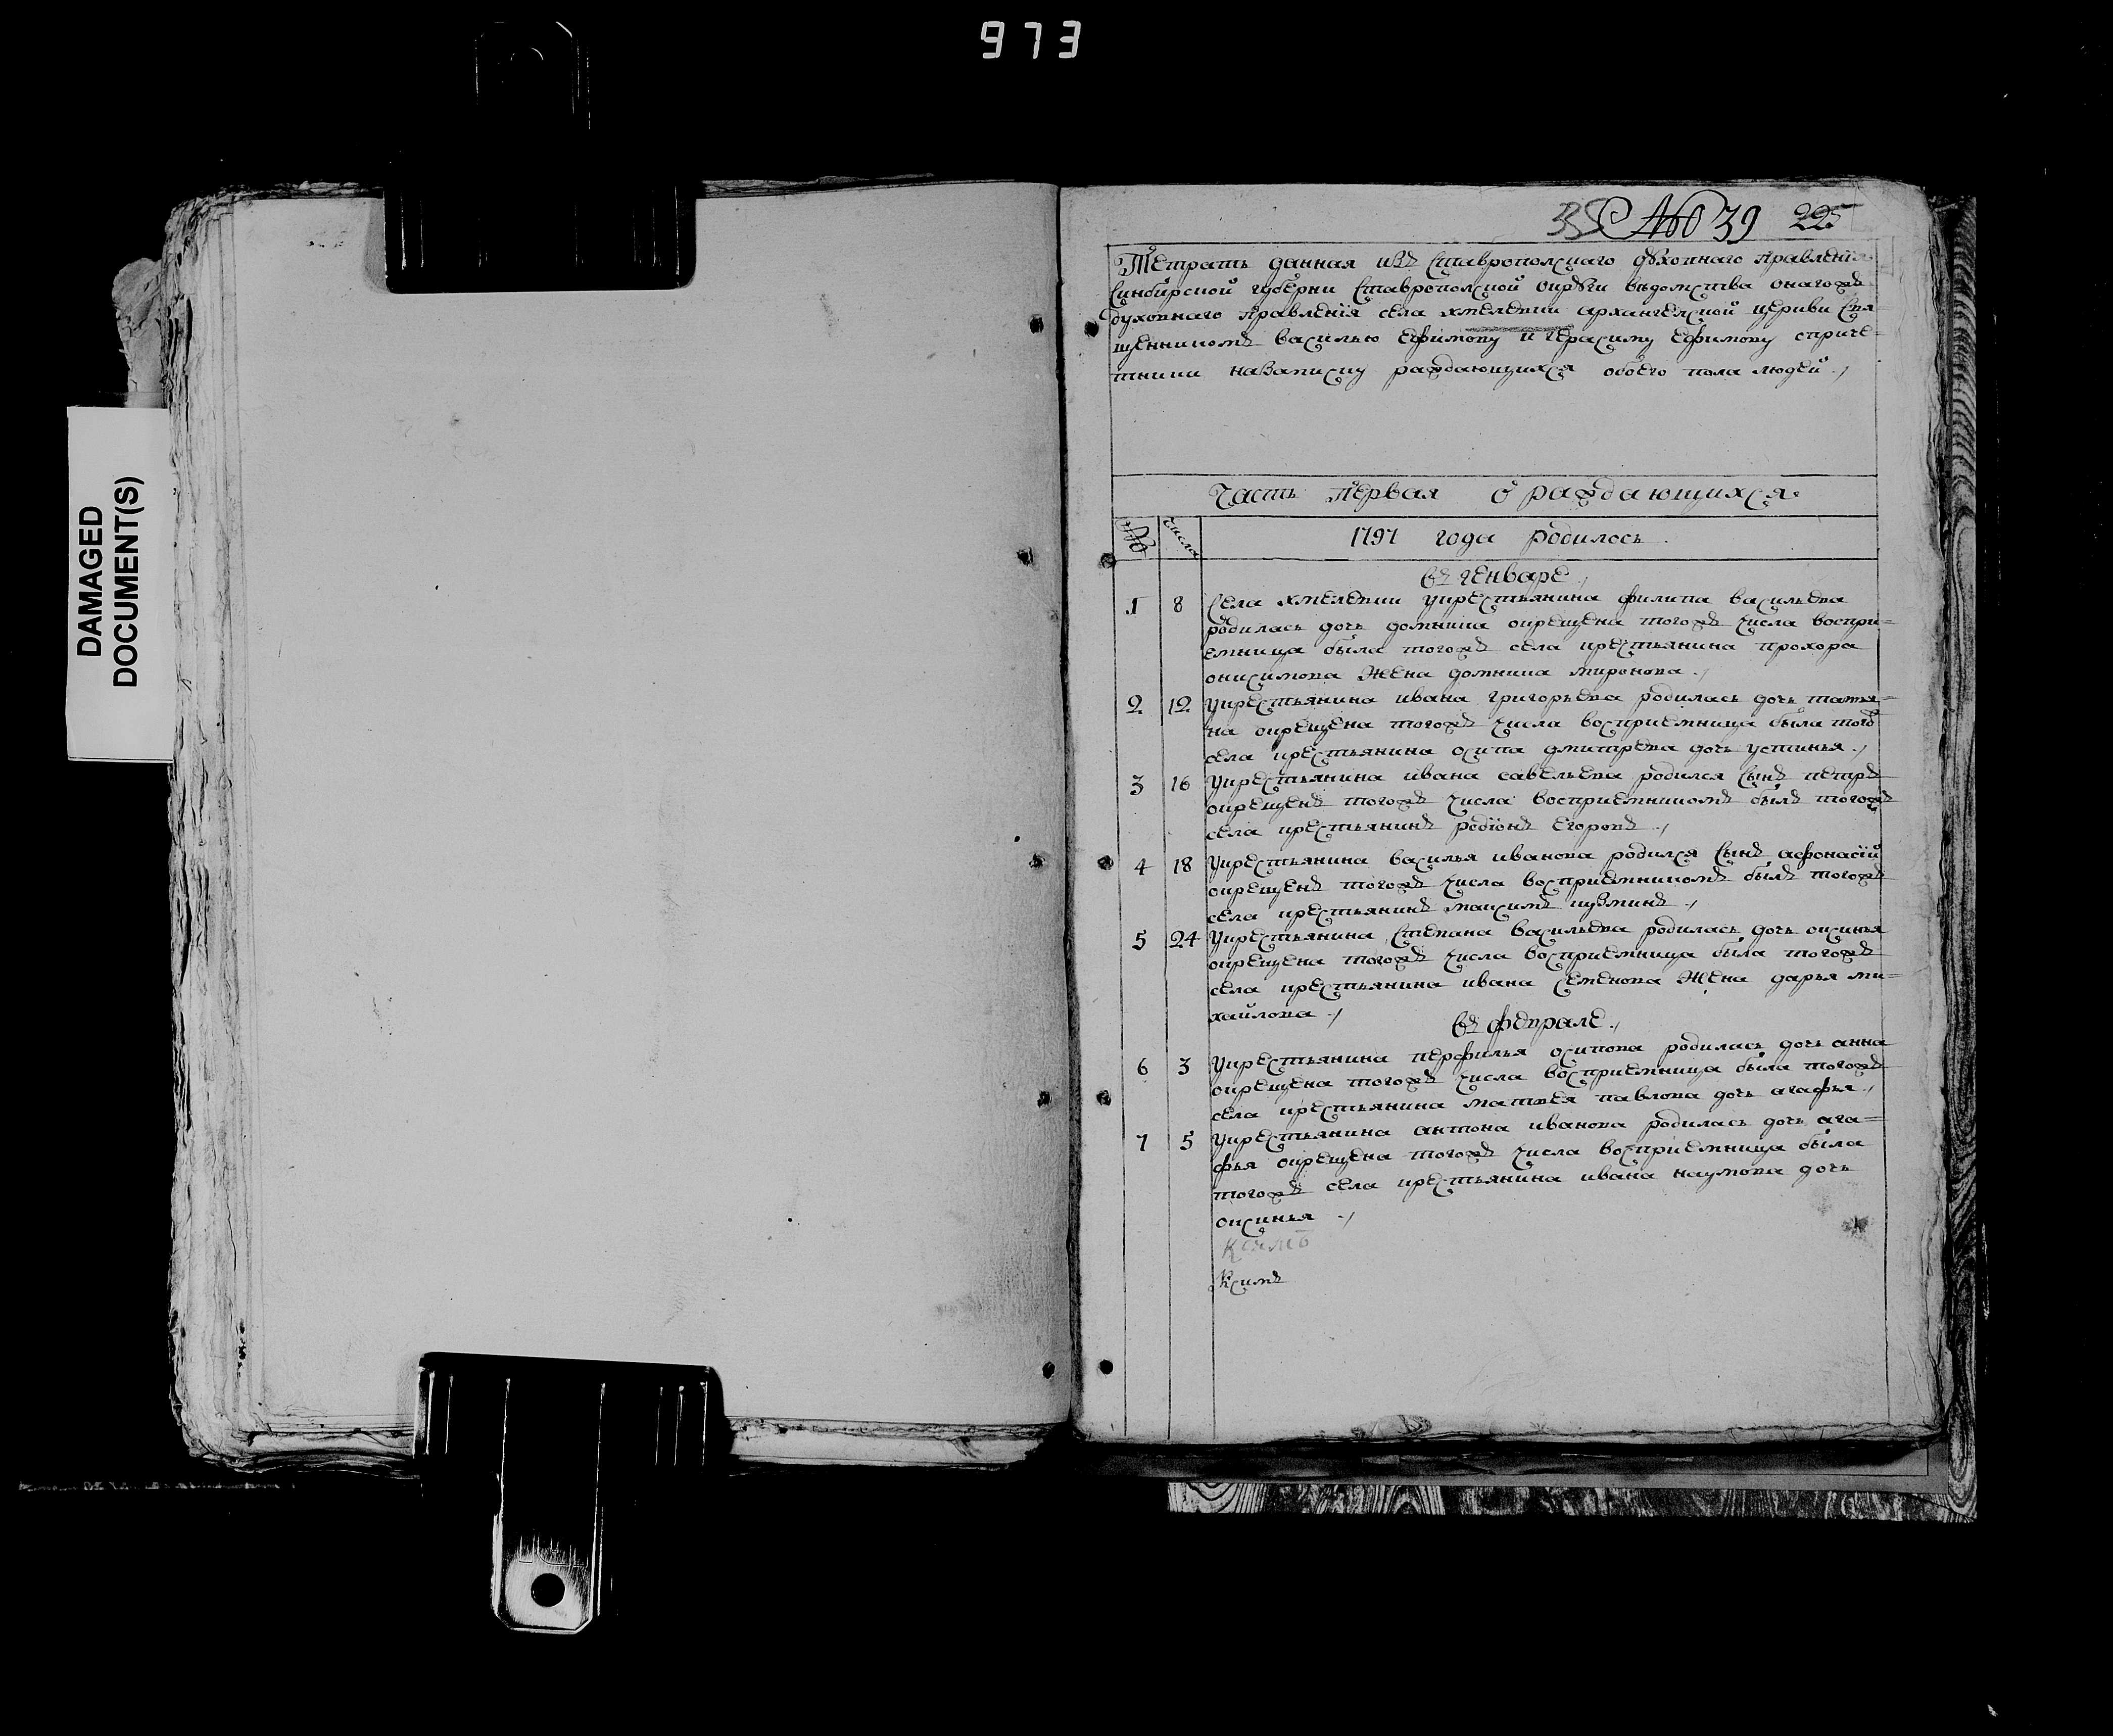 973
DAMAGED
DOCUMENT(S)
№ 39 225
Тетрать данная изъ Ставрополскаго духовнаго правления
Синбирской губерни Ставрополской округи ведомства оногожъ
духовнаго правления села хмелевки архангелской церкви Свя-
щенникомъ василью Ефимову и герасиму Ефимову спричe-
тники назаписку раждающихся обоего пола людей
Часть первая о раждающихся
№ числа 1797 года родилось
въ генваре
1 8 Села хмелевки укрестьянина филипа васильева
родилась дочь домника окрещена тогожъ числа воспри=
емница была тогожъ села крестьянина прохора
онисимова жена домника миронова
2 12 укрестьянина ивана григорьева родилась дочь татья-
на окрещена тогожъ числа восприемница была того
села крестьянина осипа дмитрева дочь устинья
3 16 укрестьянина ивана савельева родился сынъ петръ
окрещенъ тогожъ числа восприемникомъ былъ тогожъ
села крестьянинъ родионъ Егоровъ
4 18 укрестьянина василья иванова родился сынъ афонасий
окрещенъ тогожъ числа восприемникомъ былъ тогожъ
села крестьянинъ максимъ кузминъ
5 24 укрестьянина Степана васильева родилась дочь оксинья
окрещена тогожъ числа восприемница была тогожъ
села крестьянина ивана семенова жена дарья ми=
хайлова
въ феврале
6 3 укрестьянина перфилья осипова родилась дочь анна
окрещена тогожъ числа восприемница была тогожъ
села крестьянина матвея павлова дочь агафья
7 5 укрестьянина антона иванова родилась дочь ага=
фья окрещена тогожъ числа восприемница была
тогожъ села крестьянина ивана наумова дочь
оксинья
Ксимъ
Ксимъ